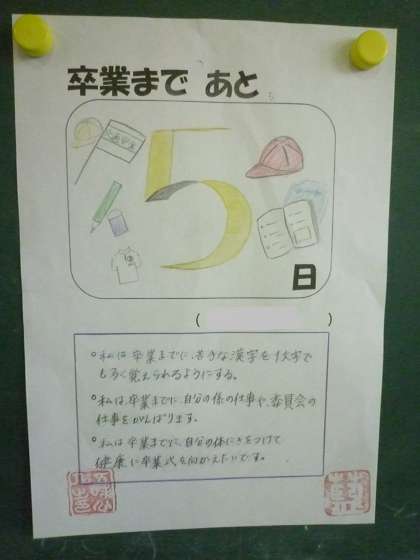 卒業まで あと
5
日
(          )
○私は卒業までに、苦手な漢字を1文字で
も多く覚えられるようにする。
○私は、卒業までに、自分の係の仕事や、委員会の
仕事をがんばります。
○私は卒業までに、自分の体にきをつけて
健康に卒業式を向かえたいです。